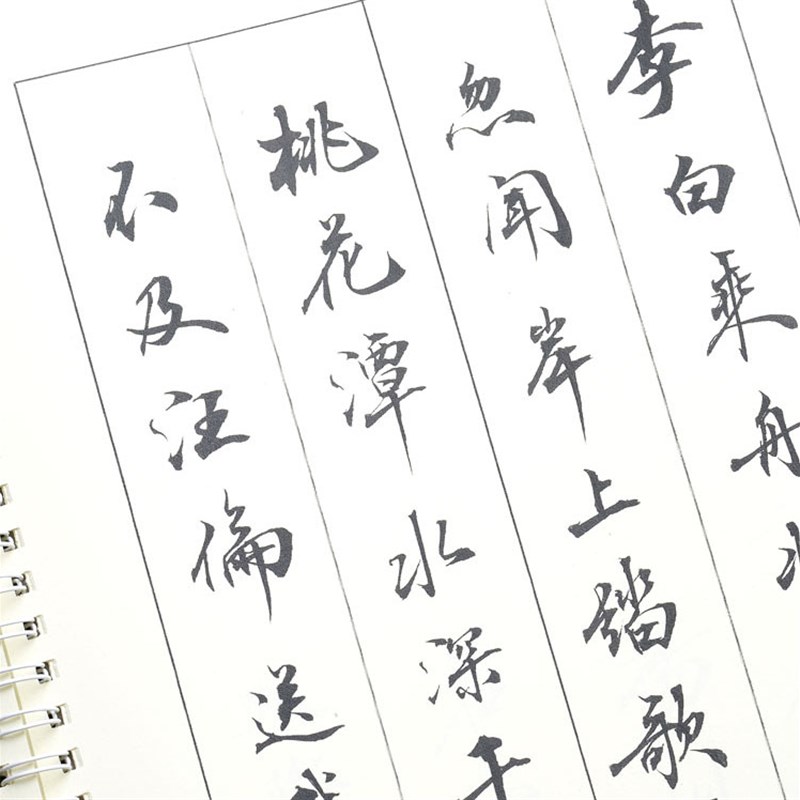 李白乘舟
忽闻岸上踏歌
桃花潭水深千
不及汪倫送我